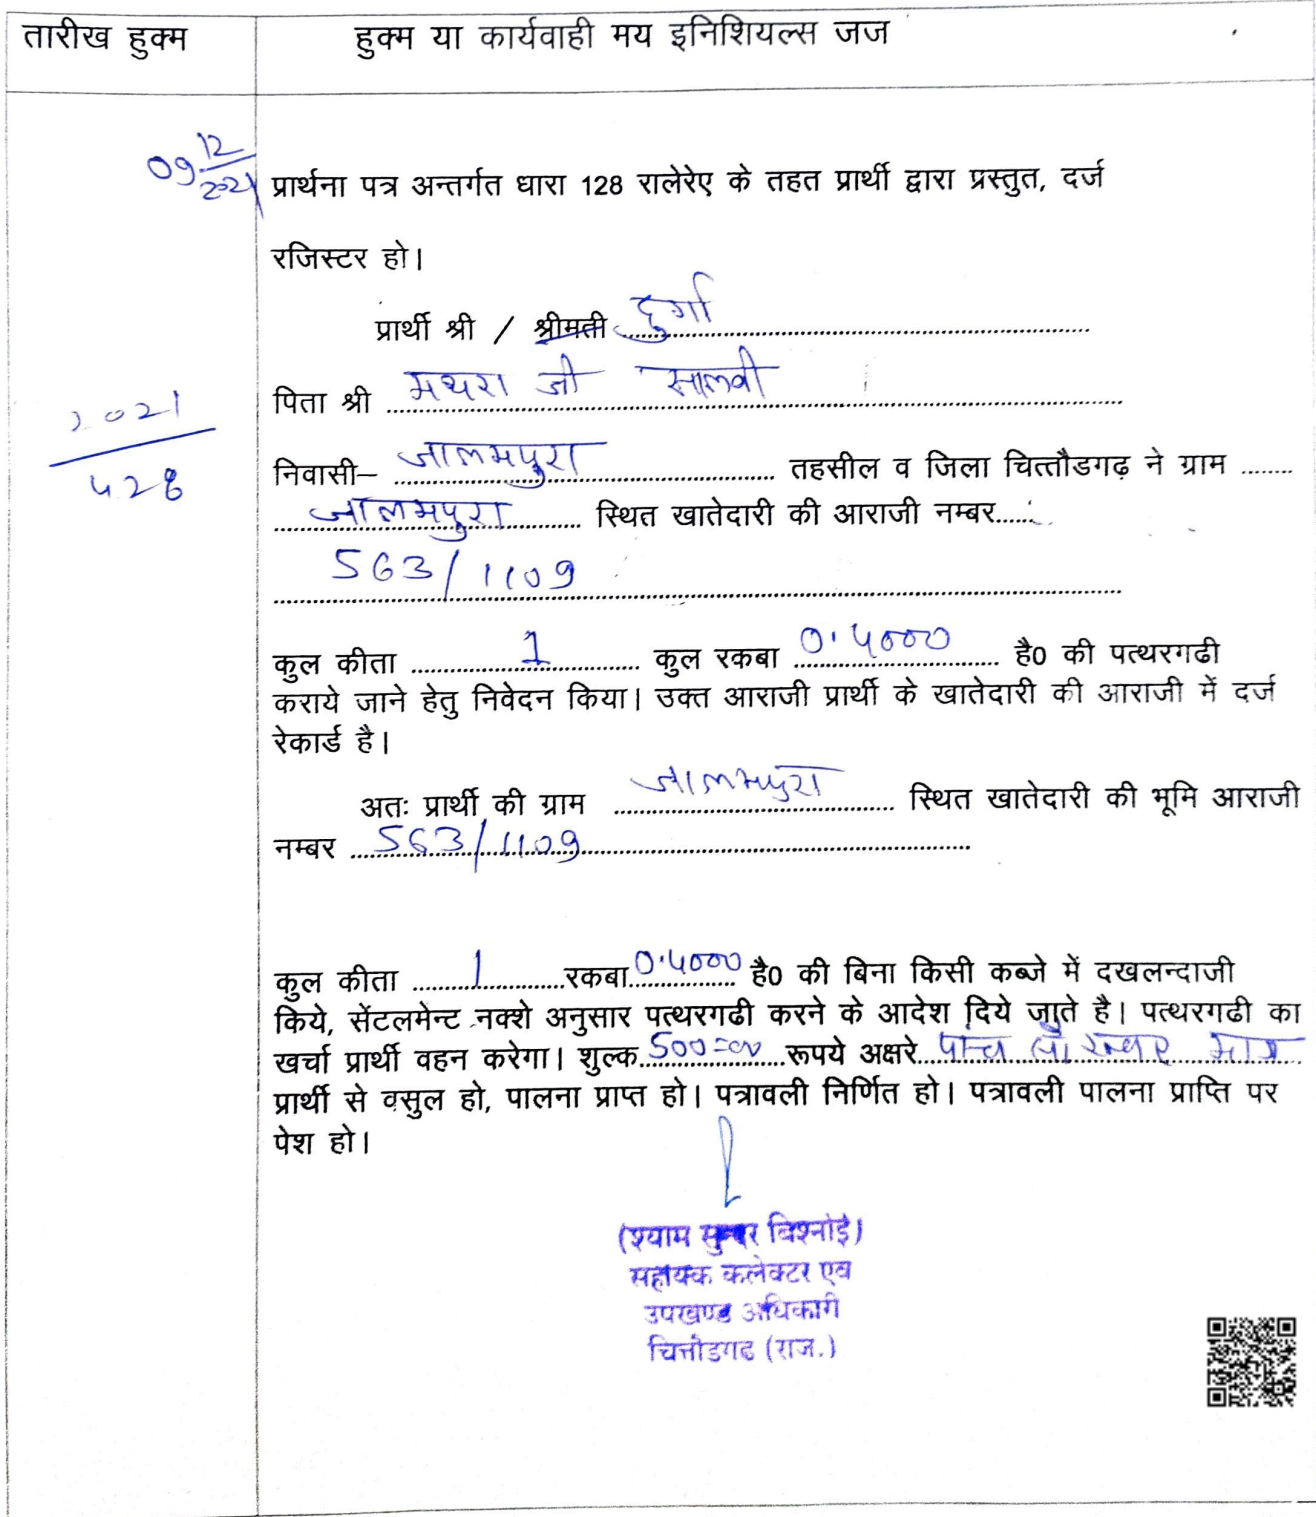 तारीख हुक्म
हुक्म या कार्यवाही मय इनिशियल्स जज
09 12/2021
प्रार्थना पत्र अन्तर्गत धारा 128 रालेरेए के तहत प्रार्थी द्वारा प्रस्तुत, दर्ज
रजिस्टर हो।
प्रार्थी श्री / श्रीमती दुर्गा
पिता श्री मथरा जी सालवी
2021/428
निवासी– जालमपुरा तहसील व जिला चित्तौडगढ़ ने ग्राम ........
जालमपुरा स्थित खातेदारी की आराजी नम्बर.....
563/1109
कुल कीता 1 कुल रकबा 0.4000 है0 की पत्थरगढी
कराये जाने हेतु निवेदन किया। उक्त आराजी प्रार्थी के खातेदारी की आराजी में दर्ज
रेकार्ड है।
अतः प्रार्थी की ग्राम जालमपुरा स्थित खातेदारी की भूमि आराजी
नम्बर 563/1109
कुल कीता 1 रकबा 0.4000 है0 की बिना किसी कब्जे में दखलन्दाजी
किये, सेंटलमेन्ट नक्शे अनुसार पत्थरगढी करने के आदेश दिये जाते है। पत्थरगढी का
खर्चा प्रार्थी वहन करेगा। शुल्क 500=00 रूपये अक्षरे पांच सौ रूपए मात्र
प्रार्थी से वसुल हो, पालना प्राप्त हो। पत्रावली निर्णित हो। पत्रावली पालना प्राप्ति पर
पेश हो।
(श्याम सुन्दर बिश्नोई)
सहायक कलेक्टर एव
उपखण्ड अधिकारी
चित्तौडगढ (राज.)